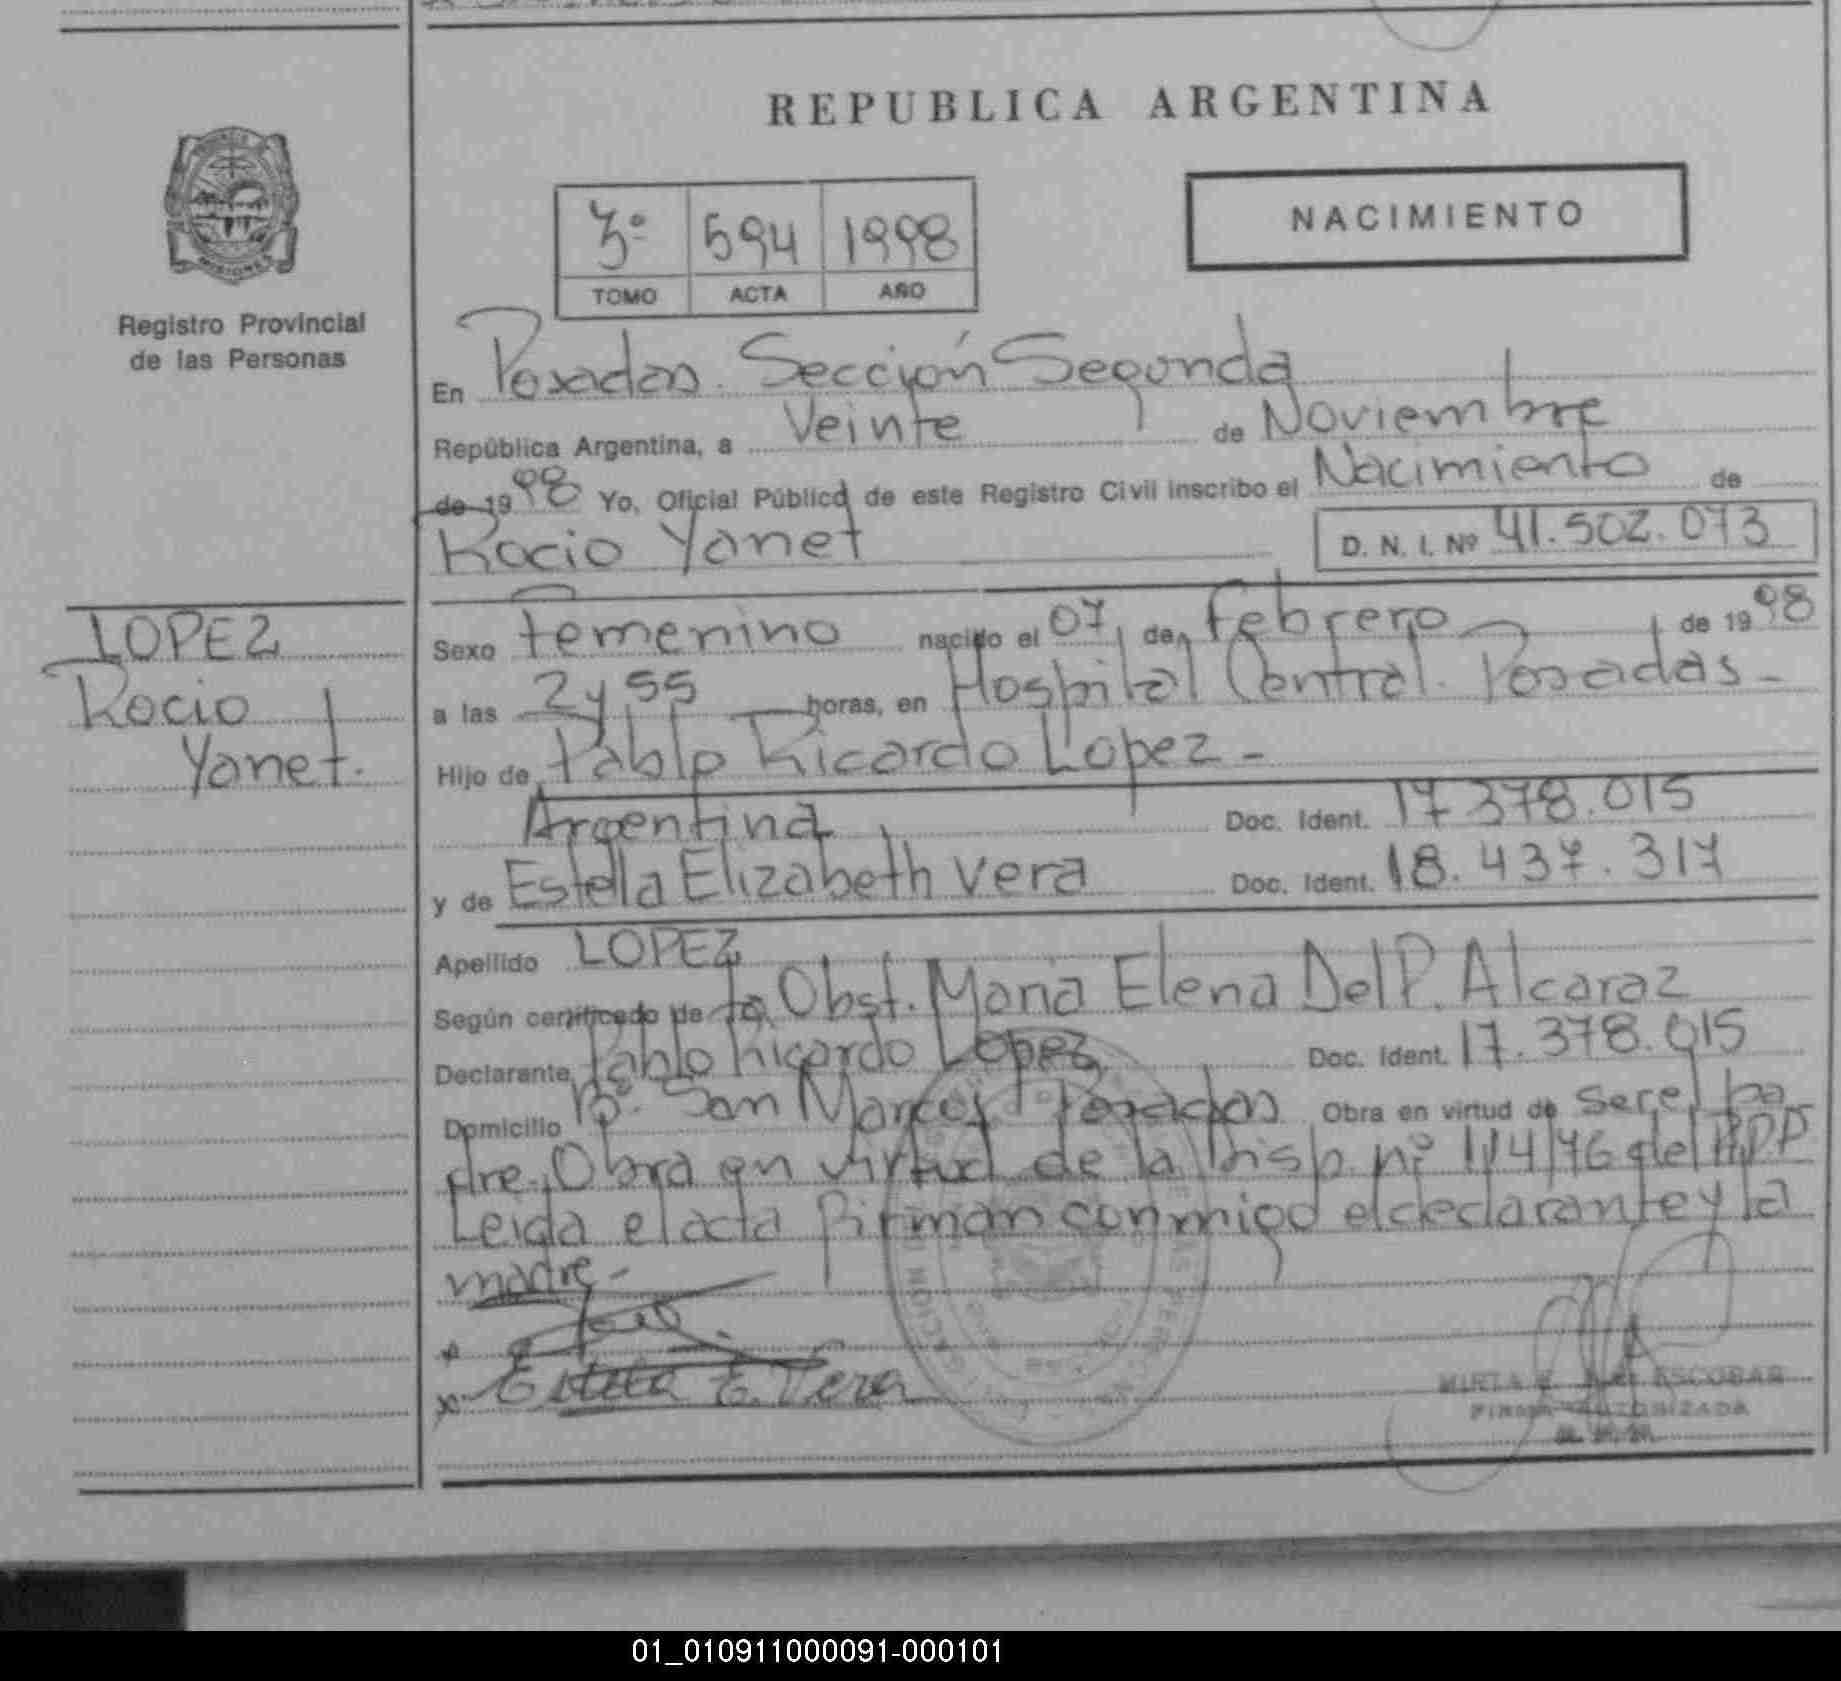 REPUBLICA ARGENTINA
PROVINCIA
MISIONES
Registro Provincial
de las Personas
3º 594 1998
TOMO ACTA AÑO
NACIMIENTO
En Posadas. Sección Segunda
República Argentina, a Veinte de Noviembre
de 1998 Yo, Oficial Público de este Registro Civil inscribo el Nacimiento de
Rocio Yanet D. N. I. Nº 41.502.073
LOPEZ
Rocio
Yanet.
Sexo Femenino nacido el 07 de Febrero de 1998
a las 2 y 55 horas, en Hospital Central. Posadas-
Hijo de Pablo Ricardo Lopez-
Argentina Doc. Ident. 17 378.015
y de Estella Elizabeth Vera Doc. Ident. 18.437.317
Apellido LOPEZ
Según certificado de la Obst. Maria Elena Del P. Alcaraz
Declarante Pablo Ricardo Lopez Doc. Ident. 17.378.015
Domicilio Bº. San Marcos Posadas Obra en virtud de ser el pa
dre. Obra en virtud de la Disp. nº 114/76 del RPP
Leida el acta firman conmigo el declarante y la
madre-
x
x Estela E. Vera
MIRTA ESCOBAR
FIRMA AUTORIZADA
01_010911000091-000101